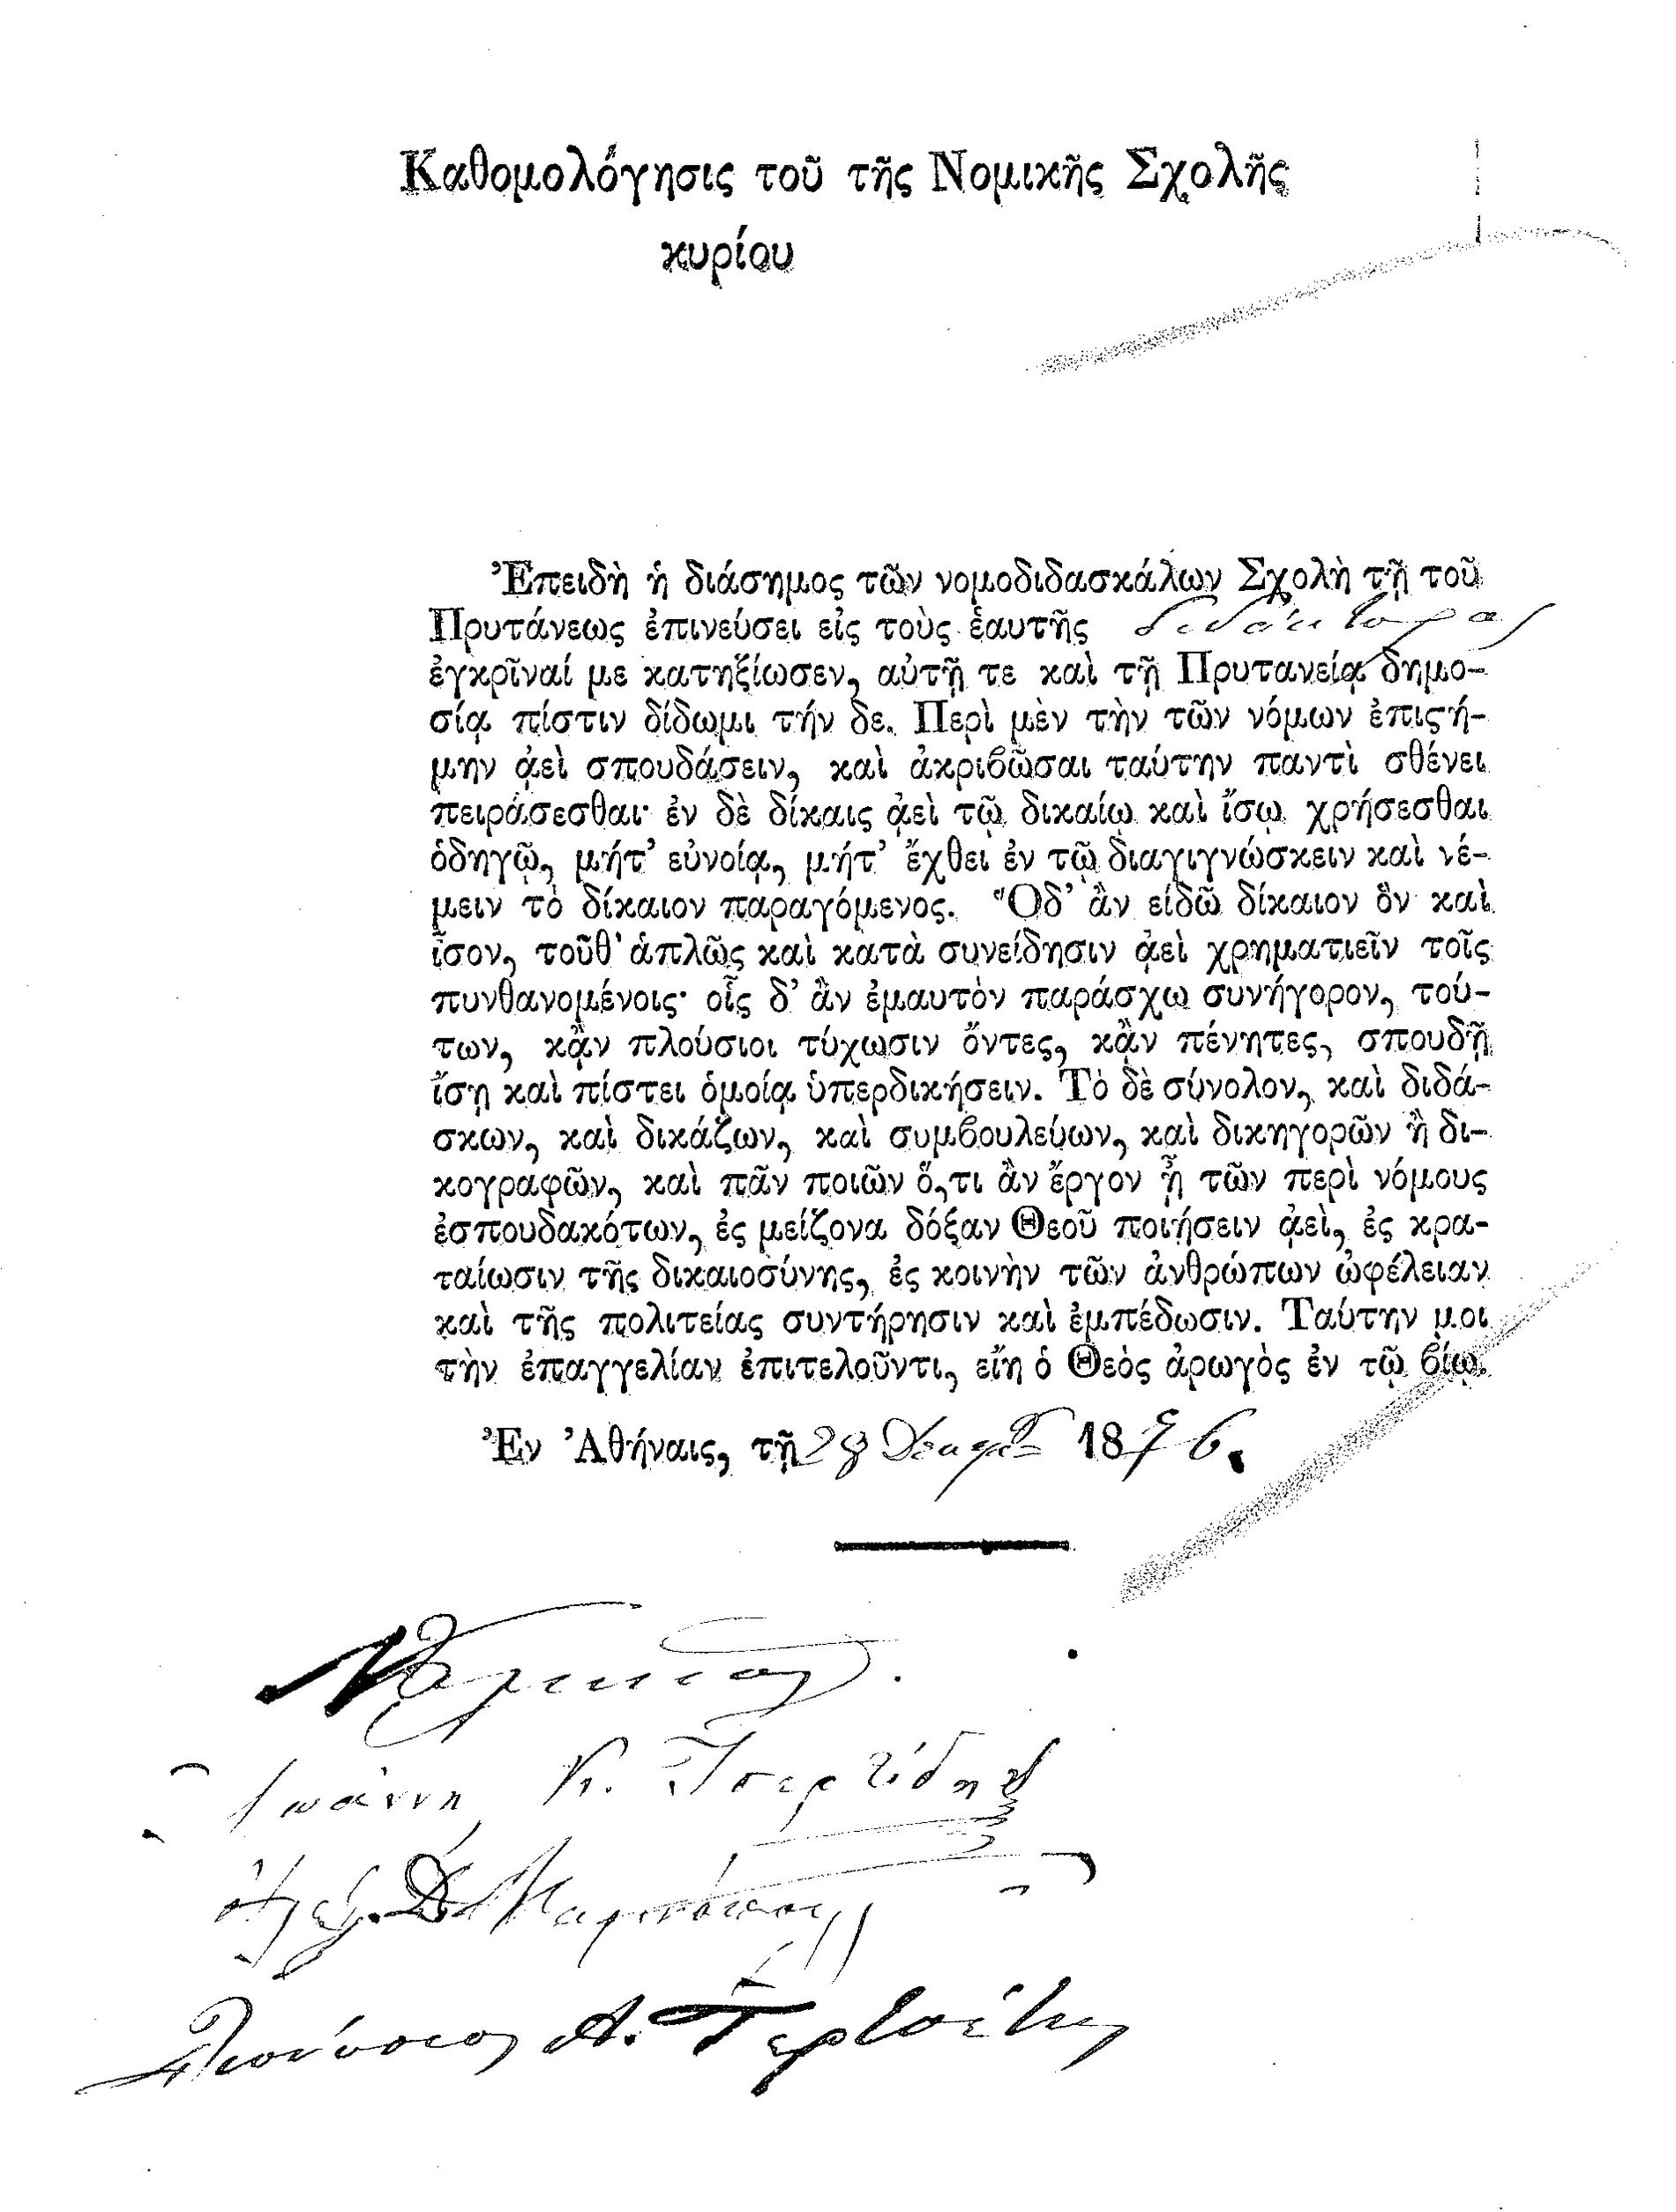 Καθομολόγησις τοῦ τῆς Νομικῆς Σχολῆς
κυρίου
Ἐπειδὴ ἡ διάσημος τῶν νομοδιδασκάλων Σχολὴ τῇ τοῦ
Πρυτάνεως ἐπινεύσει εἰς τοὺς ἑαυτῆς διδάκτορας
ἐγκρῖναί με κατηξίωσεν, αὐτῇ τε καὶ τῇ Πρυτανείᾳ δημο-
σίᾳ πίστιν δίδωμι τήν δε. Περὶ μὲν τὴν τῶν νόμων ἐπιςή-
μην ᾀεὶ σπουδάσειν, καὶ ἀκριϐῶσαι ταύτην παντὶ σθένει
πειράσεσθαι· ἐν δὲ δίκαις ᾀεὶ τῷ δικαίῳ καὶ ἴσῳ χρήσεσθαι
ὁδηγῷ, μήτ' εὐνοίᾳ, μήτ' ἔχθει ἐν τῷ διαγιγνώσκειν καὶ νέ-
μειν τὸ δίκαιον παραγόμενος. Ὃδ' ἂν εἰδῶ δίκαιον ὂν καὶ
ἶσον, τοῦθ' ἁπλῶς καὶ κατὰ συνείδησιν ᾀεὶ χρηματιεῖν τοῖς
πυνθανομένοις· οἷς δ' ἂν ἐμαυτὸν παράσχω συνήγορον, τού-
των, κᾂν πλούσιοι τύχωσιν ὄντες, κᾂν πένητες, σπουδῇ
ἴσῃ καὶ πίστει ὁμοίᾳ ὑπερδικήσειν. Τὸ δὲ σύνολον, καὶ διδά-
σκων, καὶ δικάζων, καὶ συμϐουλεύων, καὶ δικηγορῶν ἢ δι-
κογραφῶν, καὶ πᾶν ποιῶν ὅ,τι ἂν ἔργον ᾖ τῶν περὶ νόμους
ἐσπουδακότων, ἐς μείζονα δόξαν Θεοῦ ποιήσειν ᾀεὶ, ἐς κρα-
ταίωσιν τῆς δικαιοσύνης, ἐς κοινὴν τῶν ἀνθρώπων ὠφέλειαν
καὶ τῆς πολιτείας συντήρησιν καὶ ἐμπέδωσιν. Ταύτην μοι
τὴν ἐπαγγελίαν ἐπιτελοῦντι, εἴη ὁ Θεὸς ἀρωγὸς ἐν τῷ ϐίῳ.
Ἐν Ἀθήναις, τῇ 28 1876.
Ἰωάννη Κ.
Διονύσιος Α. Τερτσέτης